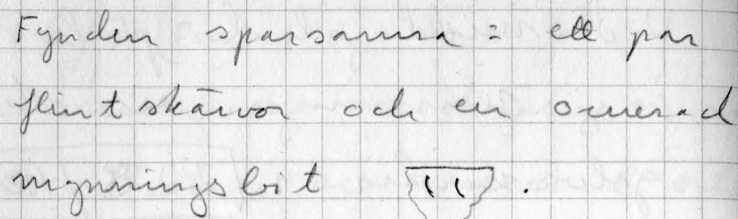 Fynden sparsamma: ett par
flintskärvor och en ornerad
mynningsbit .